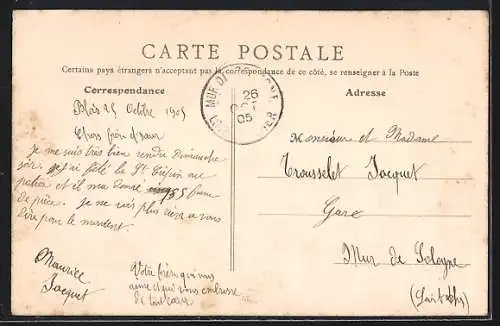 CARTE POSTALE
Certains pays étrangers n'acceptant pas la correspondance de ce côté, se renseigner à la Poste
Correspondance
Adresse
Blois 25 Octobre 1905
Chers frère et sœur
Je me suis très bien rendu Dimanche
soir. j'ai fêté la St Crépin au
patron et il m'a donné 5
de pièce. je ne vois plus rien a vous
dire pour le moment.
Maurice
Jacquet
Votre frère qui vous
aime et qui vous embrasse
de tout cœur
MUR DE SOLOGNE
26
OCT
05
LOIR ET CHER
Monsieur et Madame
Trousselet Jacquet
Gare
Mur de Sologne
(Loir et Cher)